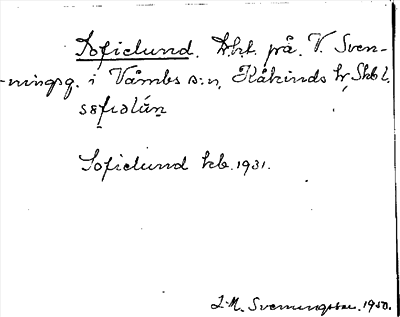 Sofielund. Lht. på V. Sven-
-ningsg. i Våmbs s:n, Kåkinds hr, Skbl.
Sofielund kb. 1931.
J.-M. Svenningsson. 1950.